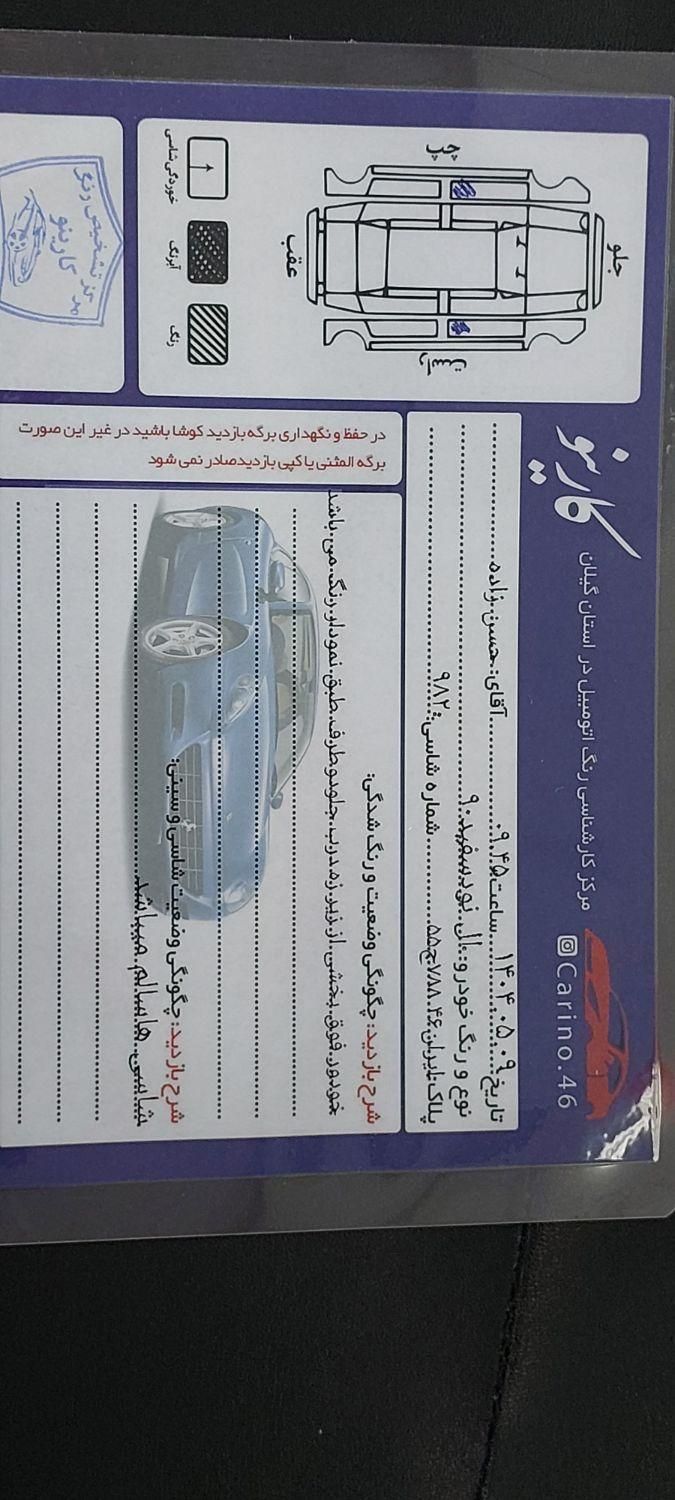 کارینو
مرکز کارشناسی رنگ اتومبیل در استان گیلان
Carino.46
تاریخ ۱۴۰۴.۰۵.۰۹ ساعت ۰۹.۴۵ آقای: حسن زاده
نوع و رنگ خودرو: ال نود سفید ۹۰
پلاک ایران ۴۶ ۷۸۸ج۵۵ شماره شاسی: ۹۸۲
چپ
جلو
عقب
راست
خوردگی شاسی
آبرنگ
رنگ
مرکز تشخیص رنگ
کارینو
در حفظ و نگهداری برگه بازدید کوشا باشید در غیر این صورت
برگه المثنی یا کپی بازدید صادر نمی شود
شرح بازدید: چگونگی وضعیت و رنگ شدگی:
خودرو فوق بخشی از زیر زه درب جلو دو طرف طبق نمودار رنگ می باشد
شرح بازدید: چگونگی وضعیت شاسی و سینی:
شاسی ها سالم میباشد